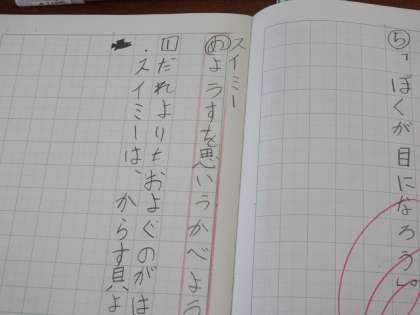 ⑤「ぼくが目になろう。」
スイミー
めようすを思いうかべよう
1だれよりもおよぐのがは
・スイミーは、からす貝よ